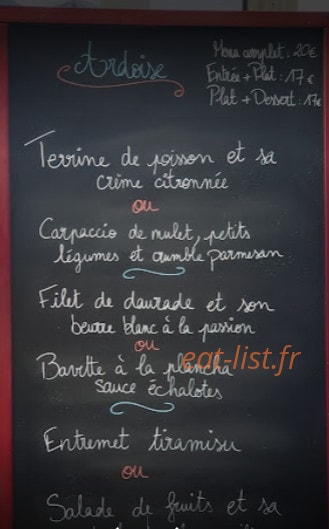 Ardoise
Menu complet : 20€
Entrée + Plat : 17€
Plat + Dessert : 17€
Terrine de poisson et sa
crème citronnée
ou
Carpaccio de mulet, petits
légumes et crumble parmesan
Filet de daurade et son
beurre blanc à la passion
ou
Bavette à la plancha
sauce échalotes
eat-list.fr
Entremet tiramisu
ou
Salade de fruits et sa